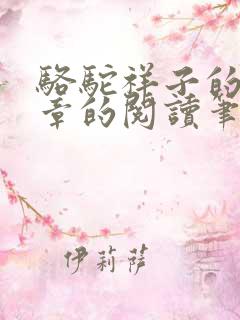 駱駝祥子的
章的閱讀筆
伊莉薩